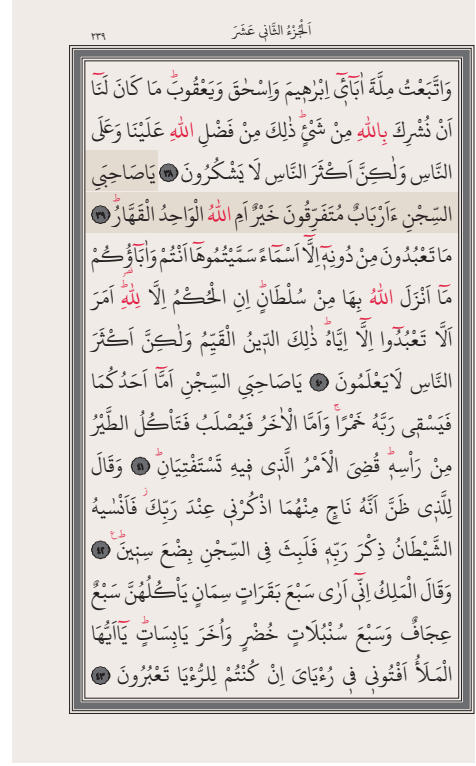 اَلْجُزْءُ الثَّانٖي عَشَرَ
٢٣٩
وَاتَّبَعْتُ مِلَّةَ اٰبَٓائٖٓي اِبْرٰهٖيمَ وَاِسْحٰقَ وَيَعْقُوبَؕ مَا كَانَ لَنَٓا
اَنْ نُشْرِكَ بِاللّٰهِ مِنْ شَيْءٍؕ ذٰلِكَ مِنْ فَضْلِ اللّٰهِ عَلَيْنَا وَعَلَى
النَّاسِ وَلٰكِنَّ اَكْثَرَ النَّاسِ لَا يَشْكُرُونَ ﴿٣٨﴾ يَاصَاحِبَيِ
السِّجْنِ ءَاَرْبَابٌ مُتَفَرِّقُونَ خَيْرٌ اَمِ اللّٰهُ الْوَاحِدُ الْقَهَّارُؕ ﴿٣٩﴾
مَا تَعْبُدُونَ مِنْ دُونِهٖٓ اِلَّٓا اَسْمَٓاءً سَمَّيْتُمُوهَٓا اَنْتُمْ وَاٰبَٓاؤُ۬كُمْ
مَٓا اَنْزَلَ اللّٰهُ بِهَا مِنْ سُلْطَانٍؕ اِنِ الْحُكْمُ اِلَّا لِلّٰهِؕ اَمَرَ
اَلَّا تَعْبُدُٓوا اِلَّٓا اِيَّاهُؕ ذٰلِكَ الدّٖينُ الْقَيِّمُ وَلٰكِنَّ اَكْثَرَ
النَّاسِ لَا يَعْلَمُونَ ﴿٤٠﴾ يَاصَاحِبَيِ السِّجْنِ اَمَّٓا اَحَدُكُمَا
فَيَسْقٖي رَبَّهُ خَمْرًاۚ وَاَمَّا الْاٰخَرُ فَيُصْلَبُ فَتَأْكُلُ الطَّيْرُ
مِنْ رَأْسِهٖؕ قُضِيَ الْاَمْرُ الَّذٖي فٖيهِ تَسْتَفْتِيَانِؕ ﴿٤١﴾ وَقَالَ
لِلَّذٖي ظَنَّ اَنَّهُ نَاجٍ مِنْهُمَا اذْكُرْنٖي عِنْدَ رَبِّكَؗ فَاَنْسٰيهُ
الشَّيْطَانُ ذِكْرَ رَبِّهٖ فَلَبِثَ فِي السِّجْنِ بِضْعَ سِنٖينَؕࣖ ﴿٤٢﴾
وَقَالَ الْمَلِكُ اِنّٖٓي اَرٰى سَبْعَ بَقَرَاتٍ سِمَانٍ يَأْكُلُهُنَّ سَبْعٌ
عِجَافٌ وَسَبْعَ سُنْبُلَاتٍ خُضْرٍ وَاُخَرَ يَابِسَاتٍؕ يَٓا اَيُّهَا
الْمَلَأُ اَفْتُونٖي فٖي رُءْيَايَ اِنْ كُنْتُمْ لِلرُّءْيَا تَعْبُرُونَ ﴿٤٣﴾